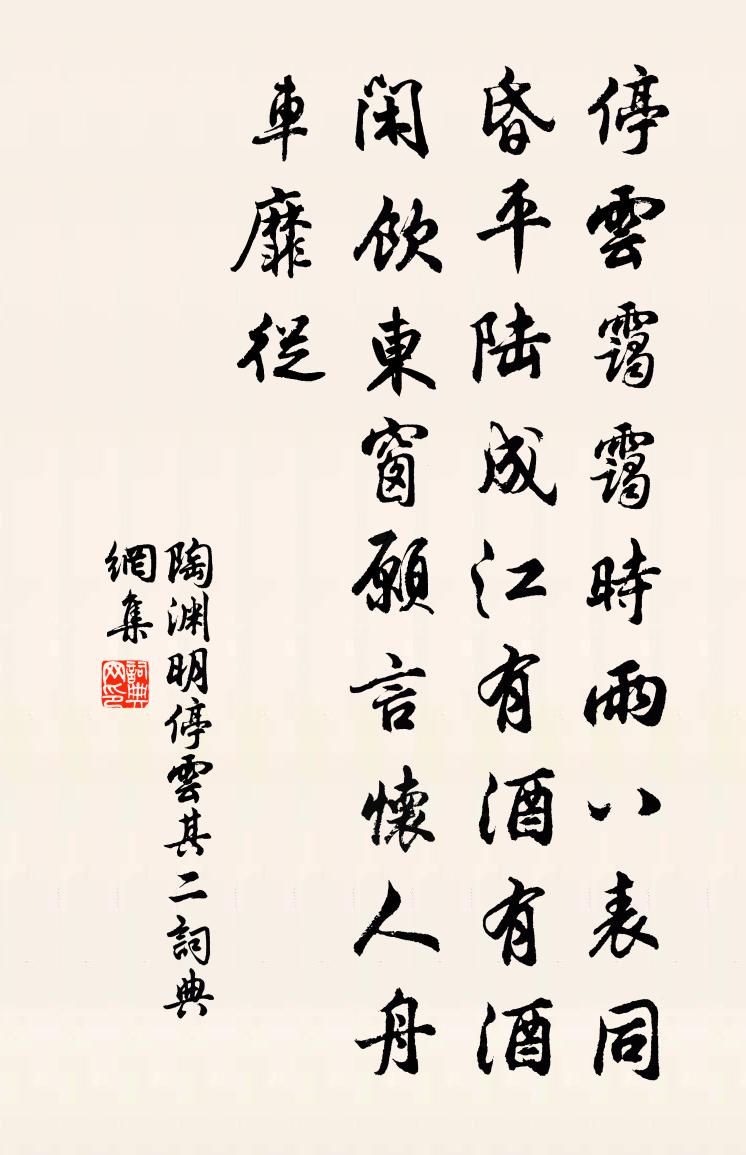 停雲靄靄時雨八表同
昏平陸成江有酒有酒
閑飲東窗願言懷人舟
車靡從
陶渊明停雲其二詞典
網集
詞典
网印